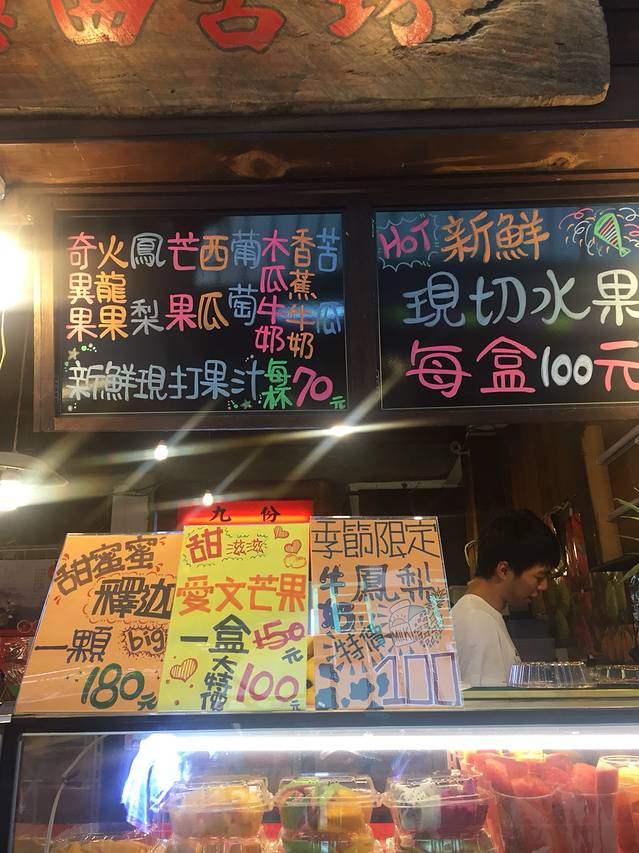 奇異果
火龍果
鳳梨
芒果
西瓜
葡萄
木瓜牛奶
香蕉牛奶
苦瓜
新鮮現打果汁每杯70元
HOT 新鮮
現切水果
每盒100元
九份
甜蜜蜜
釋迦
一顆 big
180元
甜滋滋
愛文芒果
一盒 150元
大特價 100元
季節限定
牛奶鳳梨
特價
100